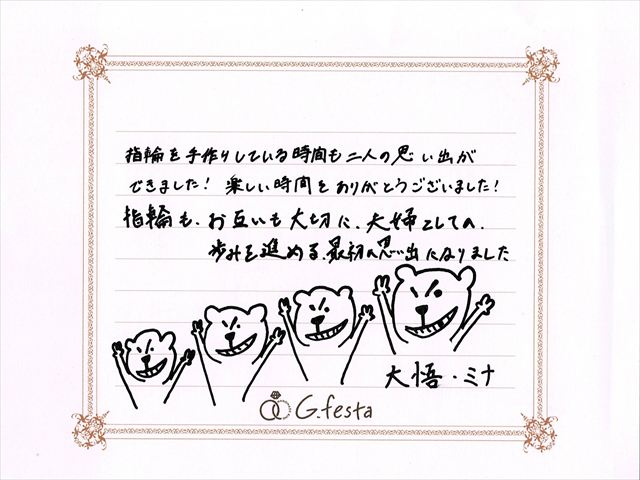 指輪を手作りしている時間も二人の思い出が
できました！ 楽しい時間をありがとうございました！
指輪も、お互いも大切に、夫婦としての、
歩みを進める、最初の思い出になりました
大悟・ミナ
G.festa